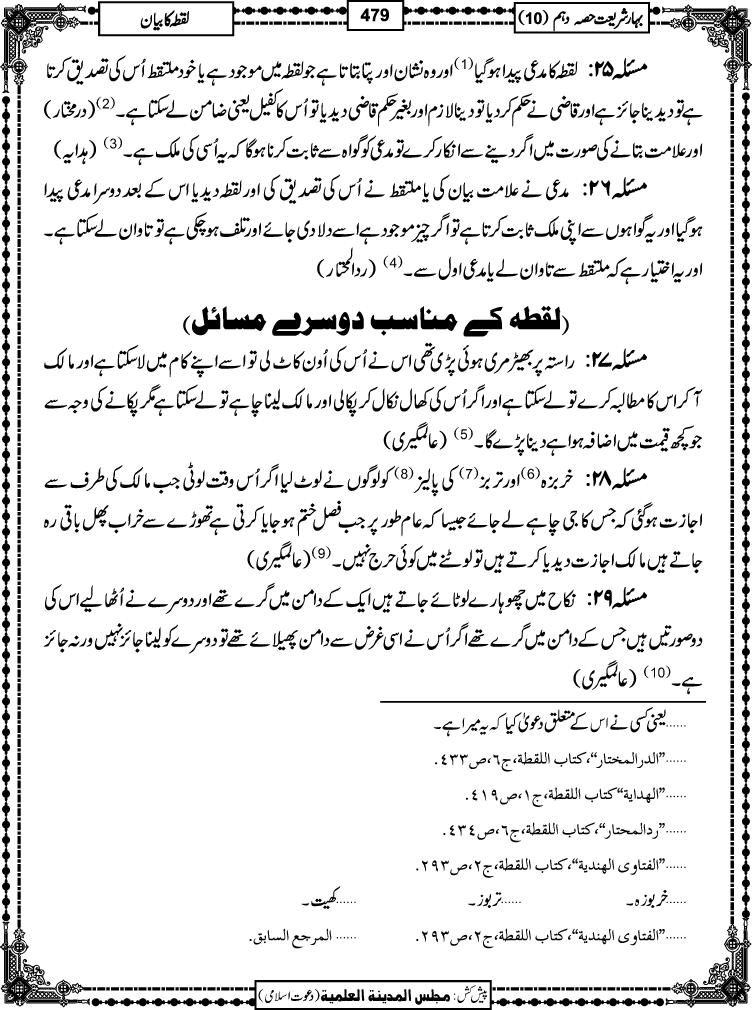 بہار شریعت حصہ دہم (10)
479
لقطہ کا بیان
مسئلہ ۲۵: لقطہ کا مدعی پیدا ہوگیا(1) اور وہ نشان اور پتا بتاتا ہے جو لقطہ میں موجود ہے یا خود ملتقط اُس کی تصدیق کرتا
ہے تو دیدینا جائز ہے اور قاضی نے حکم کردیا تو دینا لازم اور بغیر حکم قاضی دیدیا تو اُس کا کفیل یعنی ضامن لے سکتا ہے۔(2) (درمختار)
اور علامت بتانے کی صورت میں اگر دینے سے انکار کرے تو مدعی کو گواہ سے ثابت کرنا ہوگا کہ یہ اُسی کی ملک ہے۔(3) (ہدایہ)
مسئلہ ۲۶: مدعی نے علامت بیان کی یا ملتقط نے اُس کی تصدیق کی اور لقطہ دیدیا اس کے بعد دوسرا مدعی پیدا
ہوگیا اور یہ گواہوں سے اپنی ملک ثابت کرتا ہے تو اگر چیز موجود ہے اسے دلا دی جائے اور تلف ہوچکی ہے تو تاوان لے سکتا ہے۔
اور یہ اختیار ہے کہ ملتقط سے تاوان لے یا مدعی اول سے۔(4) (ردالمحتار)
(لقطہ کے مناسب دوسرے مسائل)
مسئلہ ۲۷: راستہ پر بھیڑ مری ہوئی پڑی تھی اس نے اُس کی اُون کاٹ لی تو اسے اپنے کام میں لاسکتا ہے اور مالک
آکر اس کا مطالبہ کرے تو لے سکتا ہے اور اگر اُس کی کھال نکال کر پکالی اور مالک لینا چاہے تو لے سکتا ہے مگر پکانے کی وجہ سے
جو کچھ قیمت میں اضافہ ہوا ہے دینا پڑے گا۔(5) (عالمگیری)
مسئلہ ۲۸: خربزہ(6) اور تربز(7) کی پالیز(8) کو لوگوں نے لوٹ لیا اگر اُس وقت لوٹی جب مالک کی طرف سے
اجازت ہوگئی کہ جس کا جی چاہے لے جائے جیسا کہ عام طور پر جب فصل ختم ہوجایا کرتی ہے تھوڑے سے خراب پھل باقی رہ
جاتے ہیں مالک اجازت دیدیا کرتے ہیں تو لوٹنے میں کوئی حرج نہیں۔(9) (عالمگیری)
مسئلہ ۲۹: نکاح میں چھوہارے لوٹائے جاتے ہیں ایک کے دامن میں گرے تھے اور دوسرے نے اُٹھالیے اس کی
دو صورتیں ہیں جس کے دامن میں گرے تھے اگر اُس نے اسی غرض سے دامن پھیلائے تھے تو دوسرے کو لینا جائز نہیں ورنہ جائز
ہے۔(10) (عالمگیری)
......یعنی کسی نے اس کے متعلق دعویٰ کیا کہ یہ میرا ہے۔
......"الدرالمختار"، کتاب اللقطة، ج٦، ص٤٣٣.
......"الهداية" کتاب اللقطة، ج١، ص٤١٩.
......"ردالمحتار"، کتاب اللقطة، ج٦، ص٤٣٤.
......"الفتاوی الهندية"، کتاب اللقطة، ج٢، ص٢٩٣.
......خربوزہ۔ ......تربوز۔ ......کھیت۔
......"الفتاوی الهندية"، کتاب اللقطة، ج٢، ص٢٩٣. ...... المرجع السابق.
پیش کش: مجلس المدينة العلمية (دعوت اسلامی)